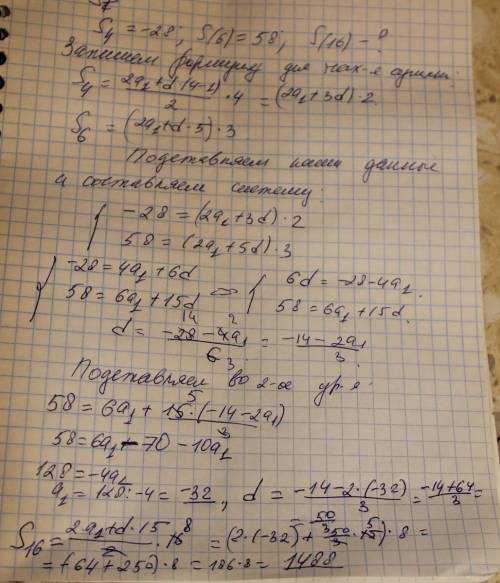 S₄ = -28; S(6) = 58; S(16) - ?
Запишем формулу для нах-я сумми:
S₄ = (2a₁ + d·(4-1))/2 · 4 = (2a₁ + 3d)·2
S₆ = (2a₁ + d·5)·3
Подставляем наши данные
и составляем систему:
{ -28 = (2a₁ + 3d)·2
58 = (2a₁ + 5d)·3
{ -28 = 4a₁ + 6d <=> { 6d = -28 - 4a₁
58 = 6a₁ + 15d 58 = 6a₁ + 15d.
d = (-28 - 4a₁)/6 = (-14 - 2a₁)/3
Подставляем во 2-ое ур-е
58 = 6a₁ + 15·(-14 - 2a₁)/3
58 = 6a₁ - 70 - 10a₁
128 = -4a₁
a₁ = 128 : -4 = -32, d = (-14 - 2·(-32))/3 = (-14 + 64)/3 =
= 50/3
S₁₆ = (2a₁ + d·15)/2 · 16 = (2·(-32) + 50/3 · 15)·8 =
= (-64 + 250)·8 = 186·8 = 1488